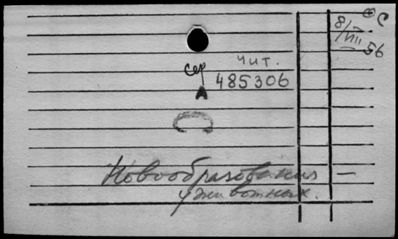 ос
8/VIII 56
чит.
сер 485306
А
С
Новообразования –
у животных.